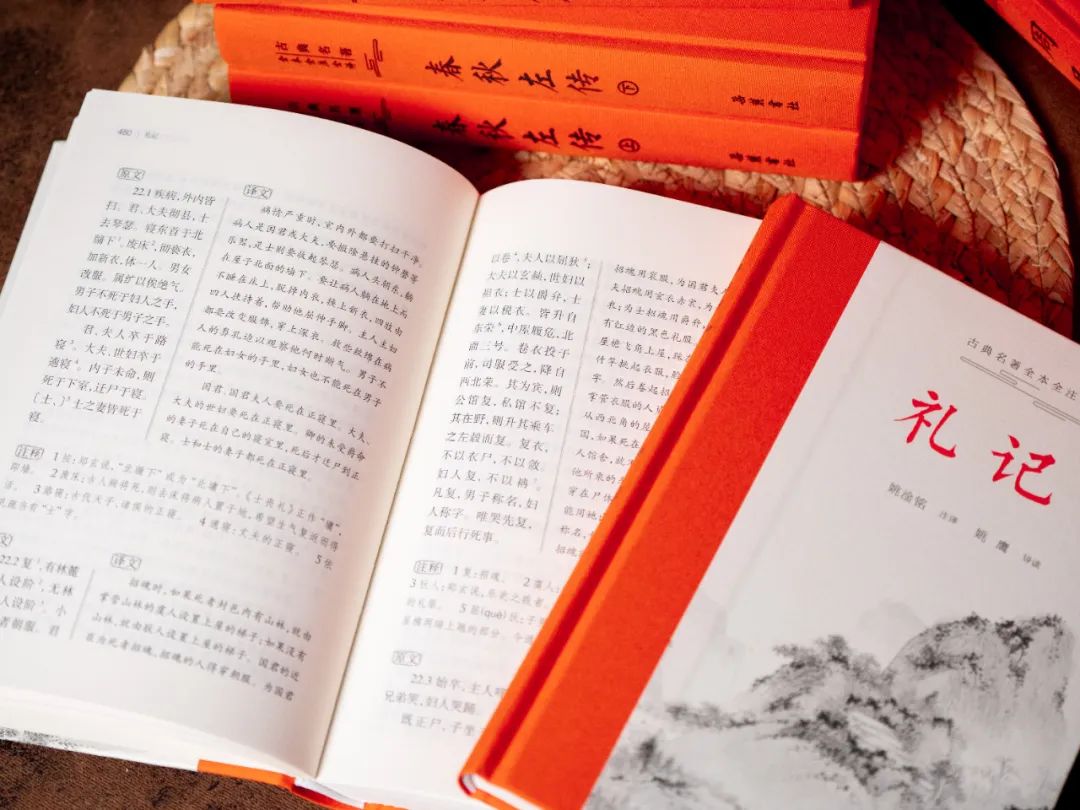 古典名著
全本全注全译
春秋左传 下
岳麓书社
春秋左传 上
岳麓书社
周
480 礼记
原文
22.1 疾病,外内皆
扫。君、大夫彻县,士
去琴瑟。寝东首于北
牖下¹。废床²,彻亵衣,
加新衣,体一人。男女
改服。属纩以俟绝气。
男子不死于妇人之手,
妇人不死于男子之手。
君、夫人卒于路
寝³。大夫、世妇卒于
適寝⁴。内子未命,则
死于下室,迁尸于寝。
〔士、〕⁵士之妻皆死于
寝。
译文
病情严重时,室内外都要打扫干净。
病人是国君或大夫,要撤除悬挂的钟磬等
乐器,是士则要收起琴瑟。病人头朝东,躺
在屋子北面的墙下。要让病人躺在地上而
不睡在床上,脱掉内衣,换上新衣,四肢由
四人扶持着,帮助他屈伸手脚。主人主妇
都要改变服饰,穿上深衣。放些丝绵在病
人的鼻孔边以观察他何时断气。男子不
能死在妇女的手里,妇女也不能死在男子
的手里。
国君、国君夫人要死在正寝里。大夫、
大夫的世妇要死在正寝里。卿的未受爵命
的妻子死在自己的寝室里,死后才迁尸到正
寝。士和士的妻子都死在正寝里。
注释 1 按:郑玄说,“北牖下”或为“北墉下”。《士丧礼》正作“墉”,
即墙。 2 废床:古人病将死,则去床得病人置于地,希望生气复返而得
活。 3 路寝:古代天子、诸侯的正寝。 4 適寝:大夫的正寝。 5 依
当有“士”字。
22.2 复¹,有林麓
人设阶²,无林
人设阶³。小
者朝服。君
译文
招魂时,如果死者封邑内有山林,就由
掌管山林的虞人设置上屋的梯子;如果没有
山林,就由狄人设置上屋的梯子。国君的近
臣为死者招魂,招魂的人得穿朝服。为国君
以卷⁴,夫人以屈狄⁵;
大夫以玄赪,世妇以
襢衣;士以爵弁,士
妻以税衣。皆升自
东荣⁶,中屋履危,北
面三号。卷衣投于
前,司服受之,降自
西北荣。其为宾,则
公馆复,私馆不复;
其在野,则升其乘车
之左毂而复。复衣,
不以衣尸,不以敛。
妇人复,不以袡⁷。
凡复,男子称名,妇
人称字。唯哭先复,
复而后行死事。
招魂用衮服,为国君夫人
夫招魂用玄衣赤裳,为
衣;为士招魂用爵弁,
有红边的黑色礼服。
字。然后卷起招
掌管衣服的人
从西北角的屋
国,如果死在
人馆舍,就不
他所来的
穿在尸体
能用她
称名,
招魂
注释 1 复:招魂。 2 虞人:
3 狄人:郑玄说,乐吏之贱者。
的礼服。 5 屈(què)狄:子
屋檐两端上翘的部分。
原文
22.3 始卒,主人啼
兄弟哭,妇人哭踊。
既正尸,子坐
古典名著全本全注
礼记
姚淦铭 注译 姚鹰 导读